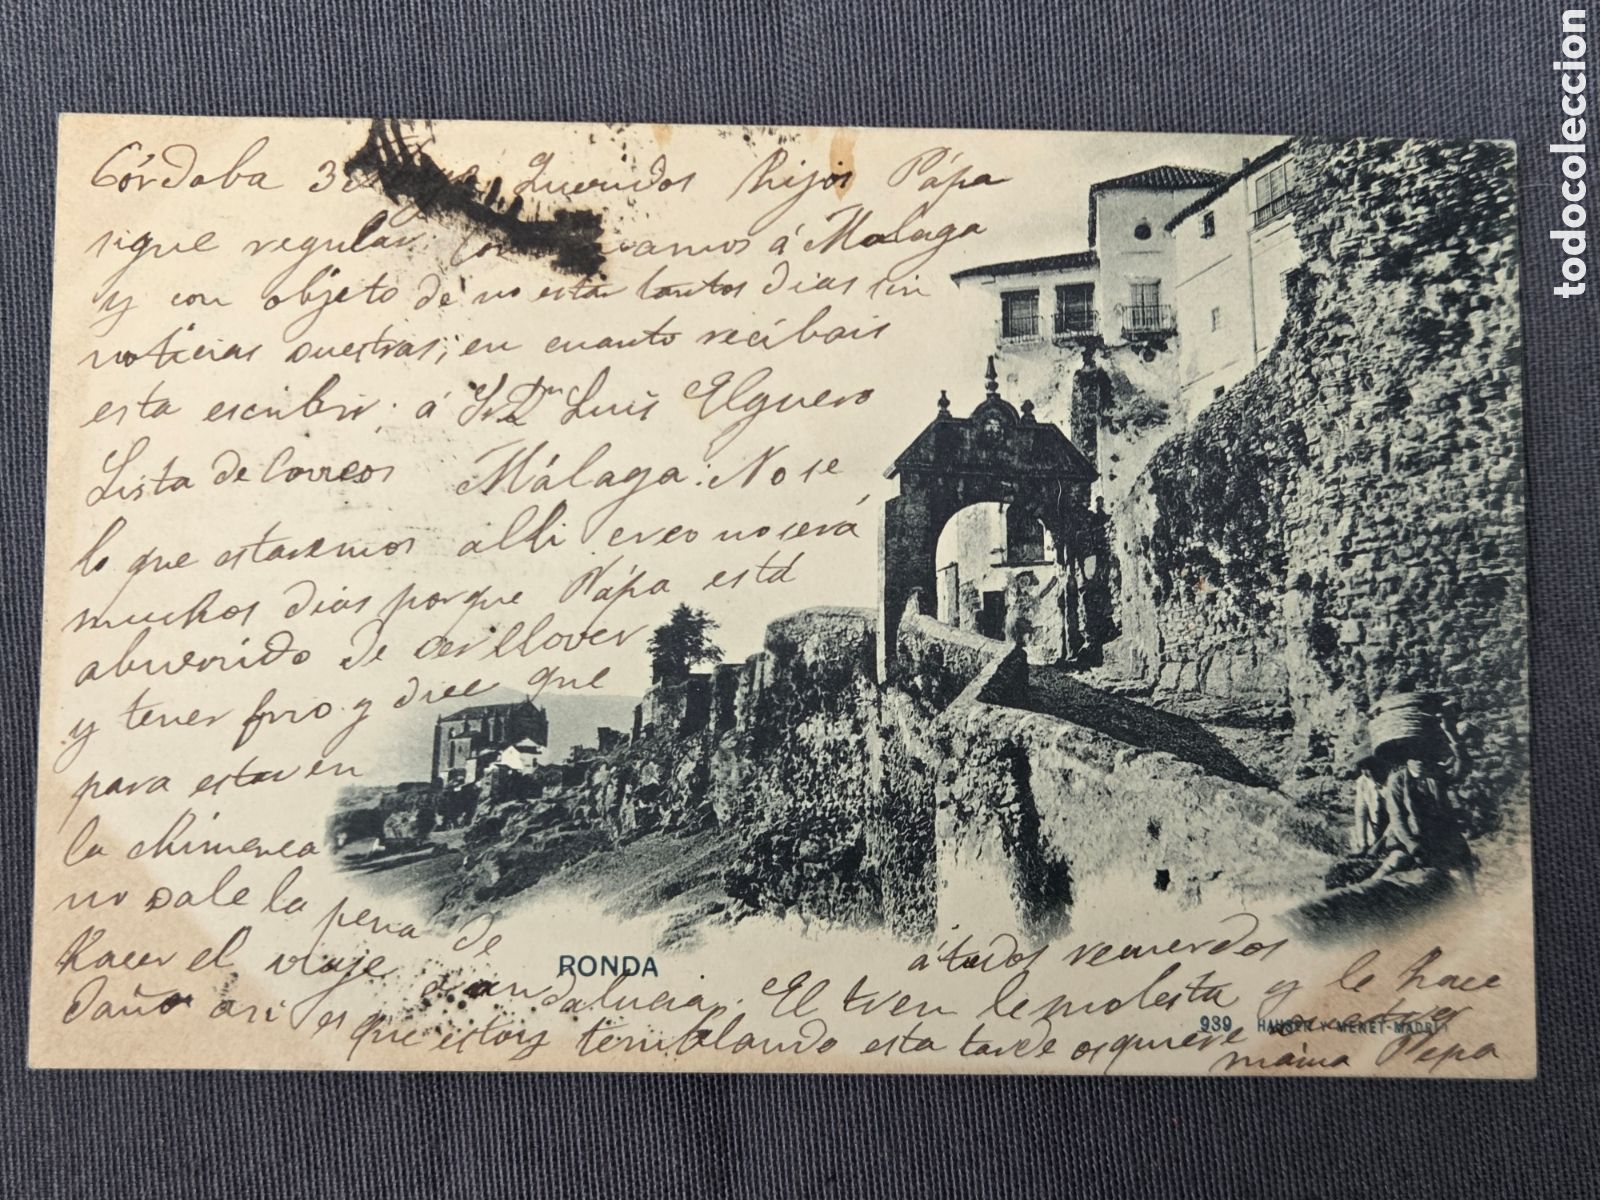 Córdoba 3 Queridos hijos Pápa
sigue regular vamos á Malaga
y con objeto de no estar tantos dias sin
noticias vuestras; en cuanto recibais
esta escribir; á Sr Dn Luis Elguero
Lista de Correos Málaga: No se
lo que estaremos alli creo no será
muchos dias porque Pápa está
aburrido de ver llover
y tener frio y dice que
para estar en
la chimenea
no vale la pena de
hacer el viaje
á Andalucia. El tren le molesta y le hace
daño asi es
que estoy temblando esta tarde os quiere
máma Pepa
á todos recuerdos
RONDA
939 HAUSER Y MENET-MADRID
todocoleccion